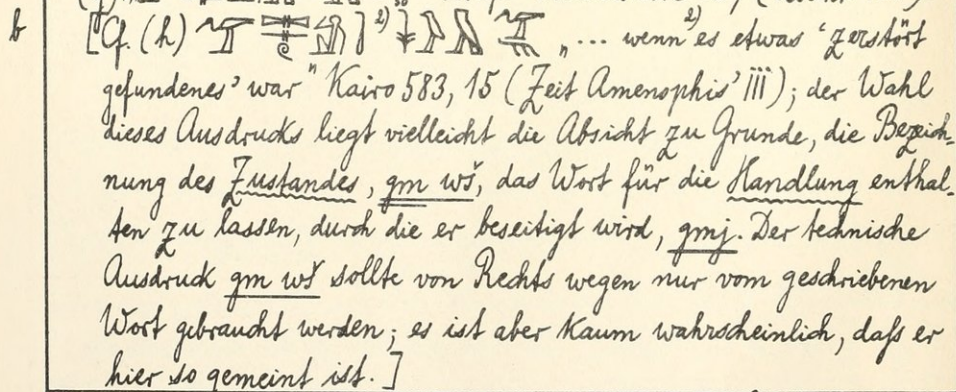 b [Cf. (h) ²⁾ "... wenn ²⁾ es etwas 'zerstört
gefundenes' war" Kairo 583, 15 (Zeit Amenophis' iii); der Wahl
dieses Ausdrucks liegt vielleicht die Absicht zu Grunde, die Bezeich-
nung des Zustandes, gm wš, das Wort für die Handlung enthal-
ten zu lassen, durch die er beseitigt wird, gmj. Der technische
Ausdruck gm wš sollte von Rechts wegen nur vom geschriebenen
Wort gebraucht werden; es ist aber kaum wahrscheinlich, daſs er
hier so gemeint ist.]